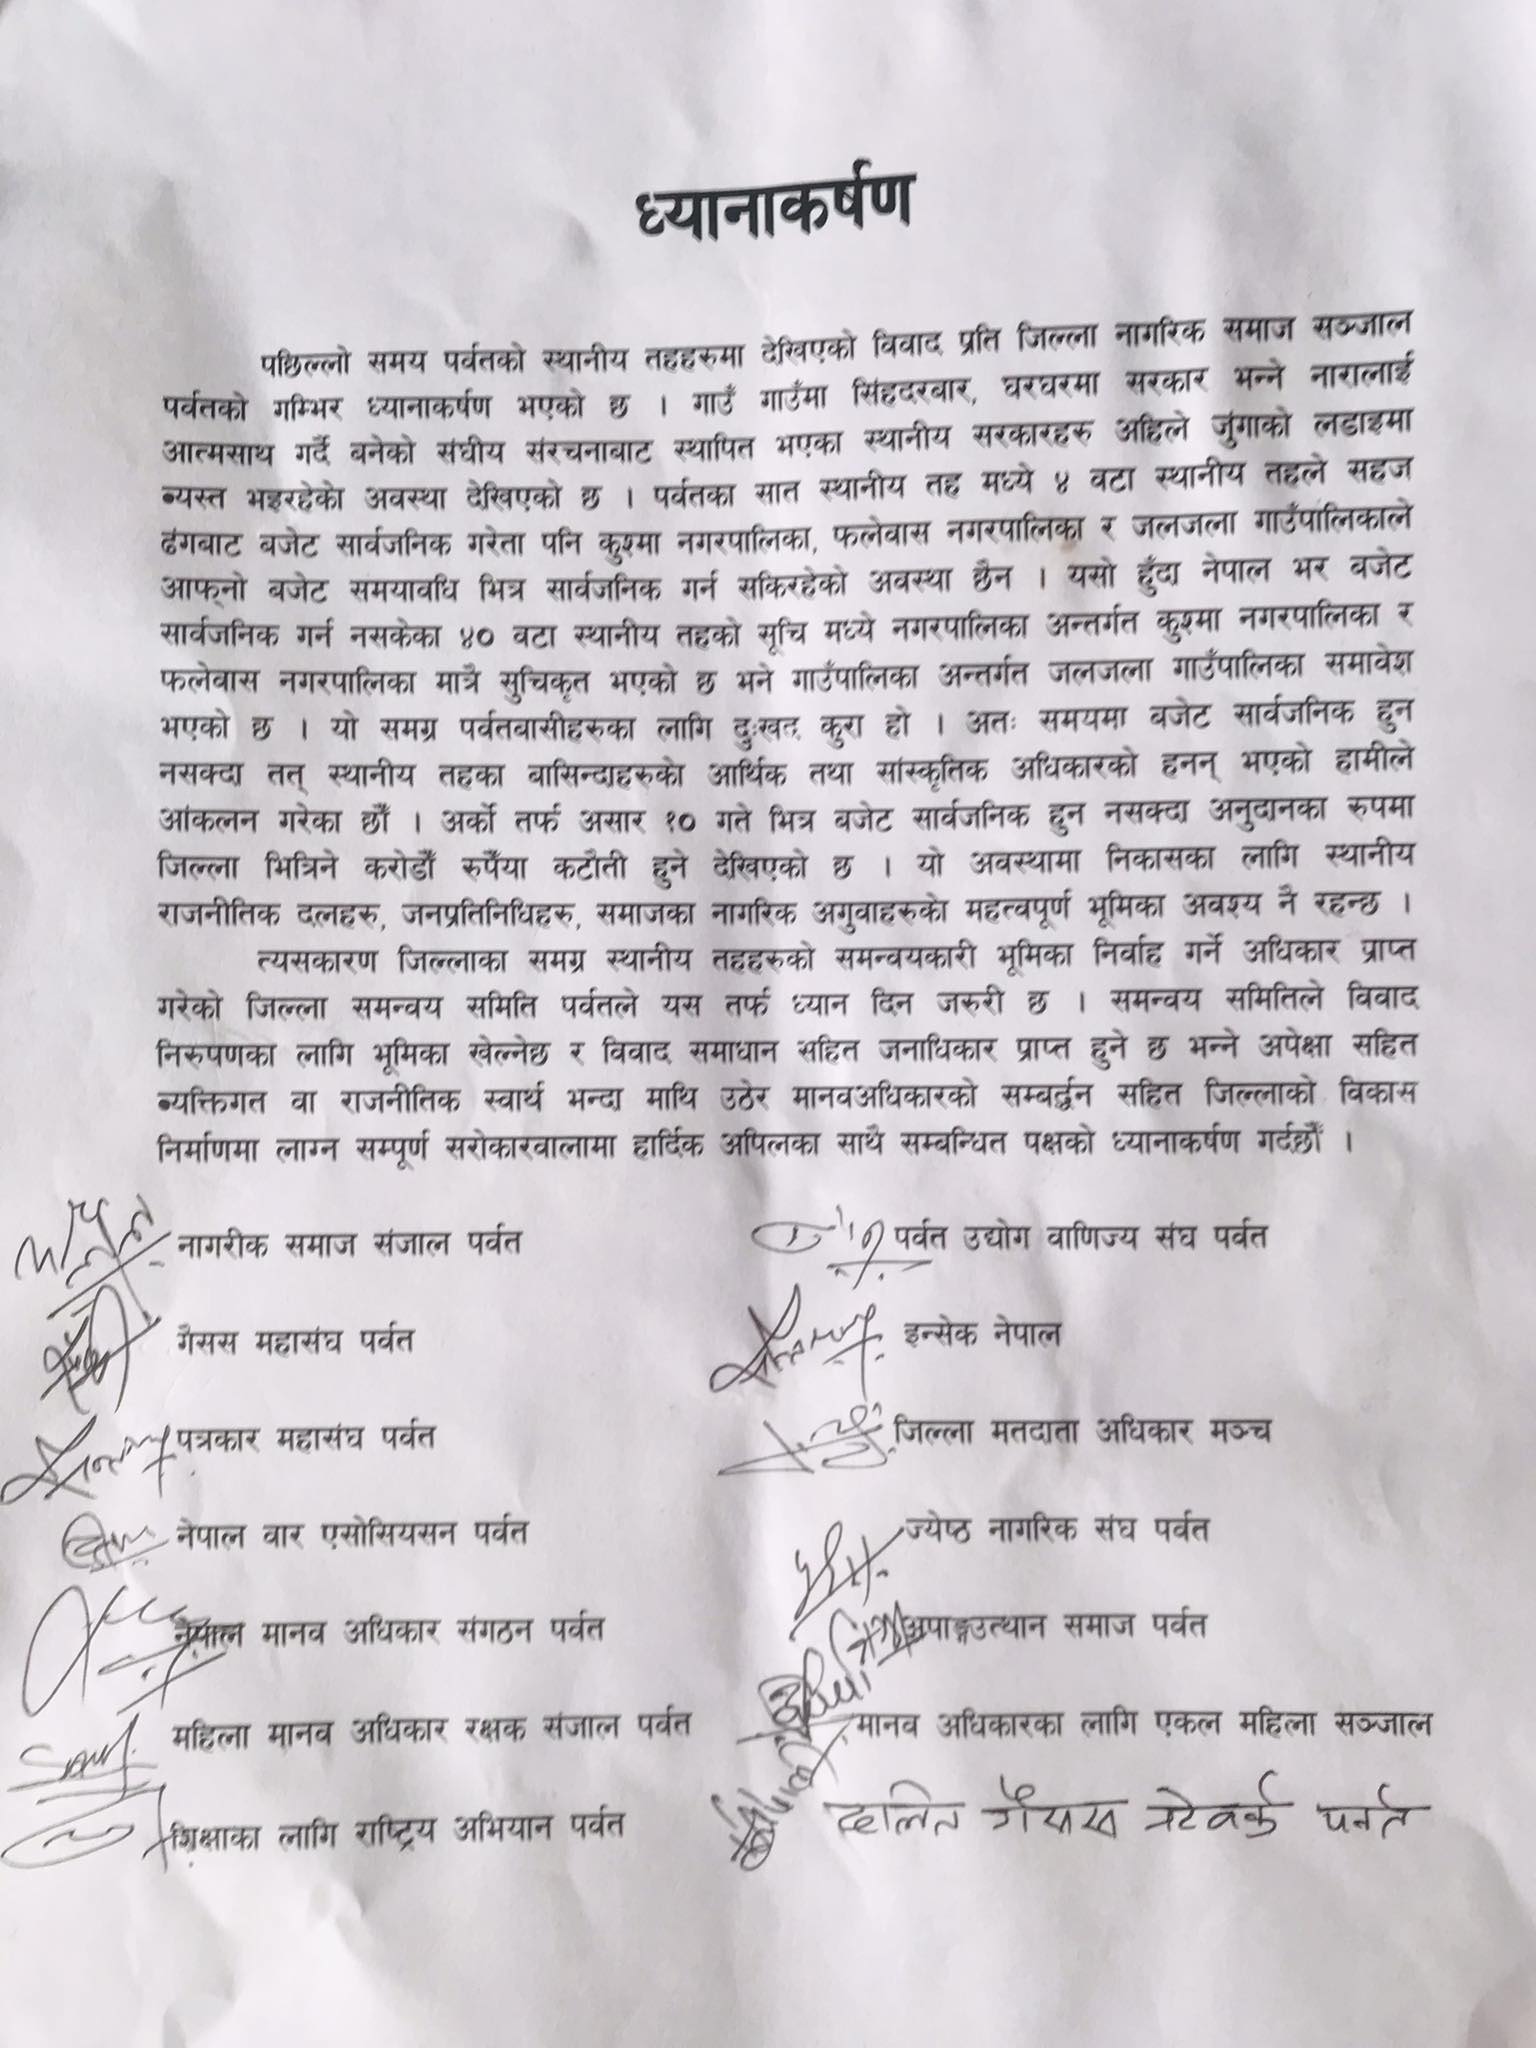 ध्यानाकर्षण
पछिल्लो समय पर्वतको स्थानीय तहहरुमा देखिएको विवाद प्रति जिल्ला नागरिक समाज सञ्जाल
पर्वतको गम्भिर ध्यानाकर्षण भएको छ । गाउँ गाउँमा सिंहदरबार, घरघरमा सरकार भन्ने नारालाई
आत्मसाथ गर्दै बनेको संघीय संरचनाबाट स्थापित भएका स्थानीय सरकारहरु अहिले जुंगाको लडाइमा
ब्यस्त भइरहेको अवस्था देखिएको छ । पर्वतका सात स्थानीय तह मध्ये ४ वटा स्थानीय तहले सहज
ढंगबाट बजेट सार्वजनिक गरेता पनि कुश्मा नगरपालिका, फलेवास नगरपालिका र जलजला गाउँपालिकाले
आफ्नो बजेट समयावधि भित्र सार्वजनिक गर्न सकिरहेको अवस्था छैन । यसो हुँदा नेपाल भर बजेट
सार्वजनिक गर्न नसकेका ४० वटा स्थानीय तहको सूचि मध्ये नगरपालिका अन्तर्गत कुश्मा नगरपालिका र
फलेवास नगरपालिका मात्रै सुचिकृत भएको छ भने गाउँपालिका अन्तर्गत जलजला गाउँपालिका समावेश
भएको छ । यो समग्र पर्वतबासीहरुका लागि दुःखद कुरा हो । अतः समयमा बजेट सार्वजनिक हुन
नसक्दा तत् स्थानीय तहका बासिन्दाहरुको आर्थिक तथा सांस्कृतिक अधिकारको हनन् भएको हामीले
आंकलन गरेका छौं । अर्को तर्फ असार १० गते भित्र बजेट सार्वजनिक हुन नसक्दा अनुदानका रुपमा
जिल्ला भित्रिने करोडौं रुपैँया कटौती हुने देखिएको छ । यो अवस्थामा निकासका लागि स्थानीय
राजनीतिक दलहरु, जनप्रतिनिधिहरु, समाजका नागरिक अगुवाहरुको महत्वपूर्ण भूमिका अवश्य नै रहन्छ ।
त्यसकारण जिल्लाका समग्र स्थानीय तहहरुको समन्वयकारी भूमिका निर्वाह गर्ने अधिकार प्राप्त
गरेको जिल्ला समन्वय समिति पर्वतले यस तर्फ ध्यान दिन जरुरी छ । समन्वय समितिले विवाद
निरुपणका लागि भूमिका खेल्नेछ र विवाद समाधान सहित जनाधिकार प्राप्त हुने छ भन्ने अपेक्षा सहित
ब्यक्तिगत वा राजनीतिक स्वार्थ भन्दा माथि उठेर मानवअधिकारको सम्बर्द्धन सहित जिल्लाको विकास
निर्माणमा लाग्न सम्पूर्ण सरोकारवालामा हार्दिक अपिलका साथै सम्बन्धित पक्षको ध्यानाकर्षण गर्दछौं ।
नागरीक समाज संजाल पर्वत
पर्वत उद्योग वाणिज्य संघ पर्वत
गैसस महासंघ पर्वत
इन्सेक नेपाल
पत्रकार महासंघ पर्वत
जिल्ला मतदाता अधिकार मञ्च
नेपाल वार एसोसियसन पर्वत
ज्येष्ठ नागरिक संघ पर्वत
नेपाल मानव अधिकार संगठन पर्वत
अपाङ्गउत्थान समाज पर्वत
महिला मानव अधिकार रक्षक संजाल पर्वत
मानव अधिकारका लागि एकल महिला सञ्जाल
शिक्षाका लागि राष्ट्रिय अभियान पर्वत
दलित गैसस नेटवर्क पर्वत